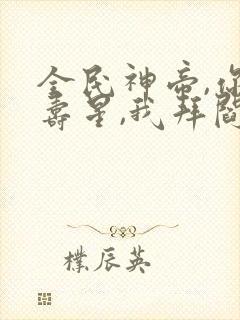 全民神帝,你
寿星,我拜阎
樸辰英